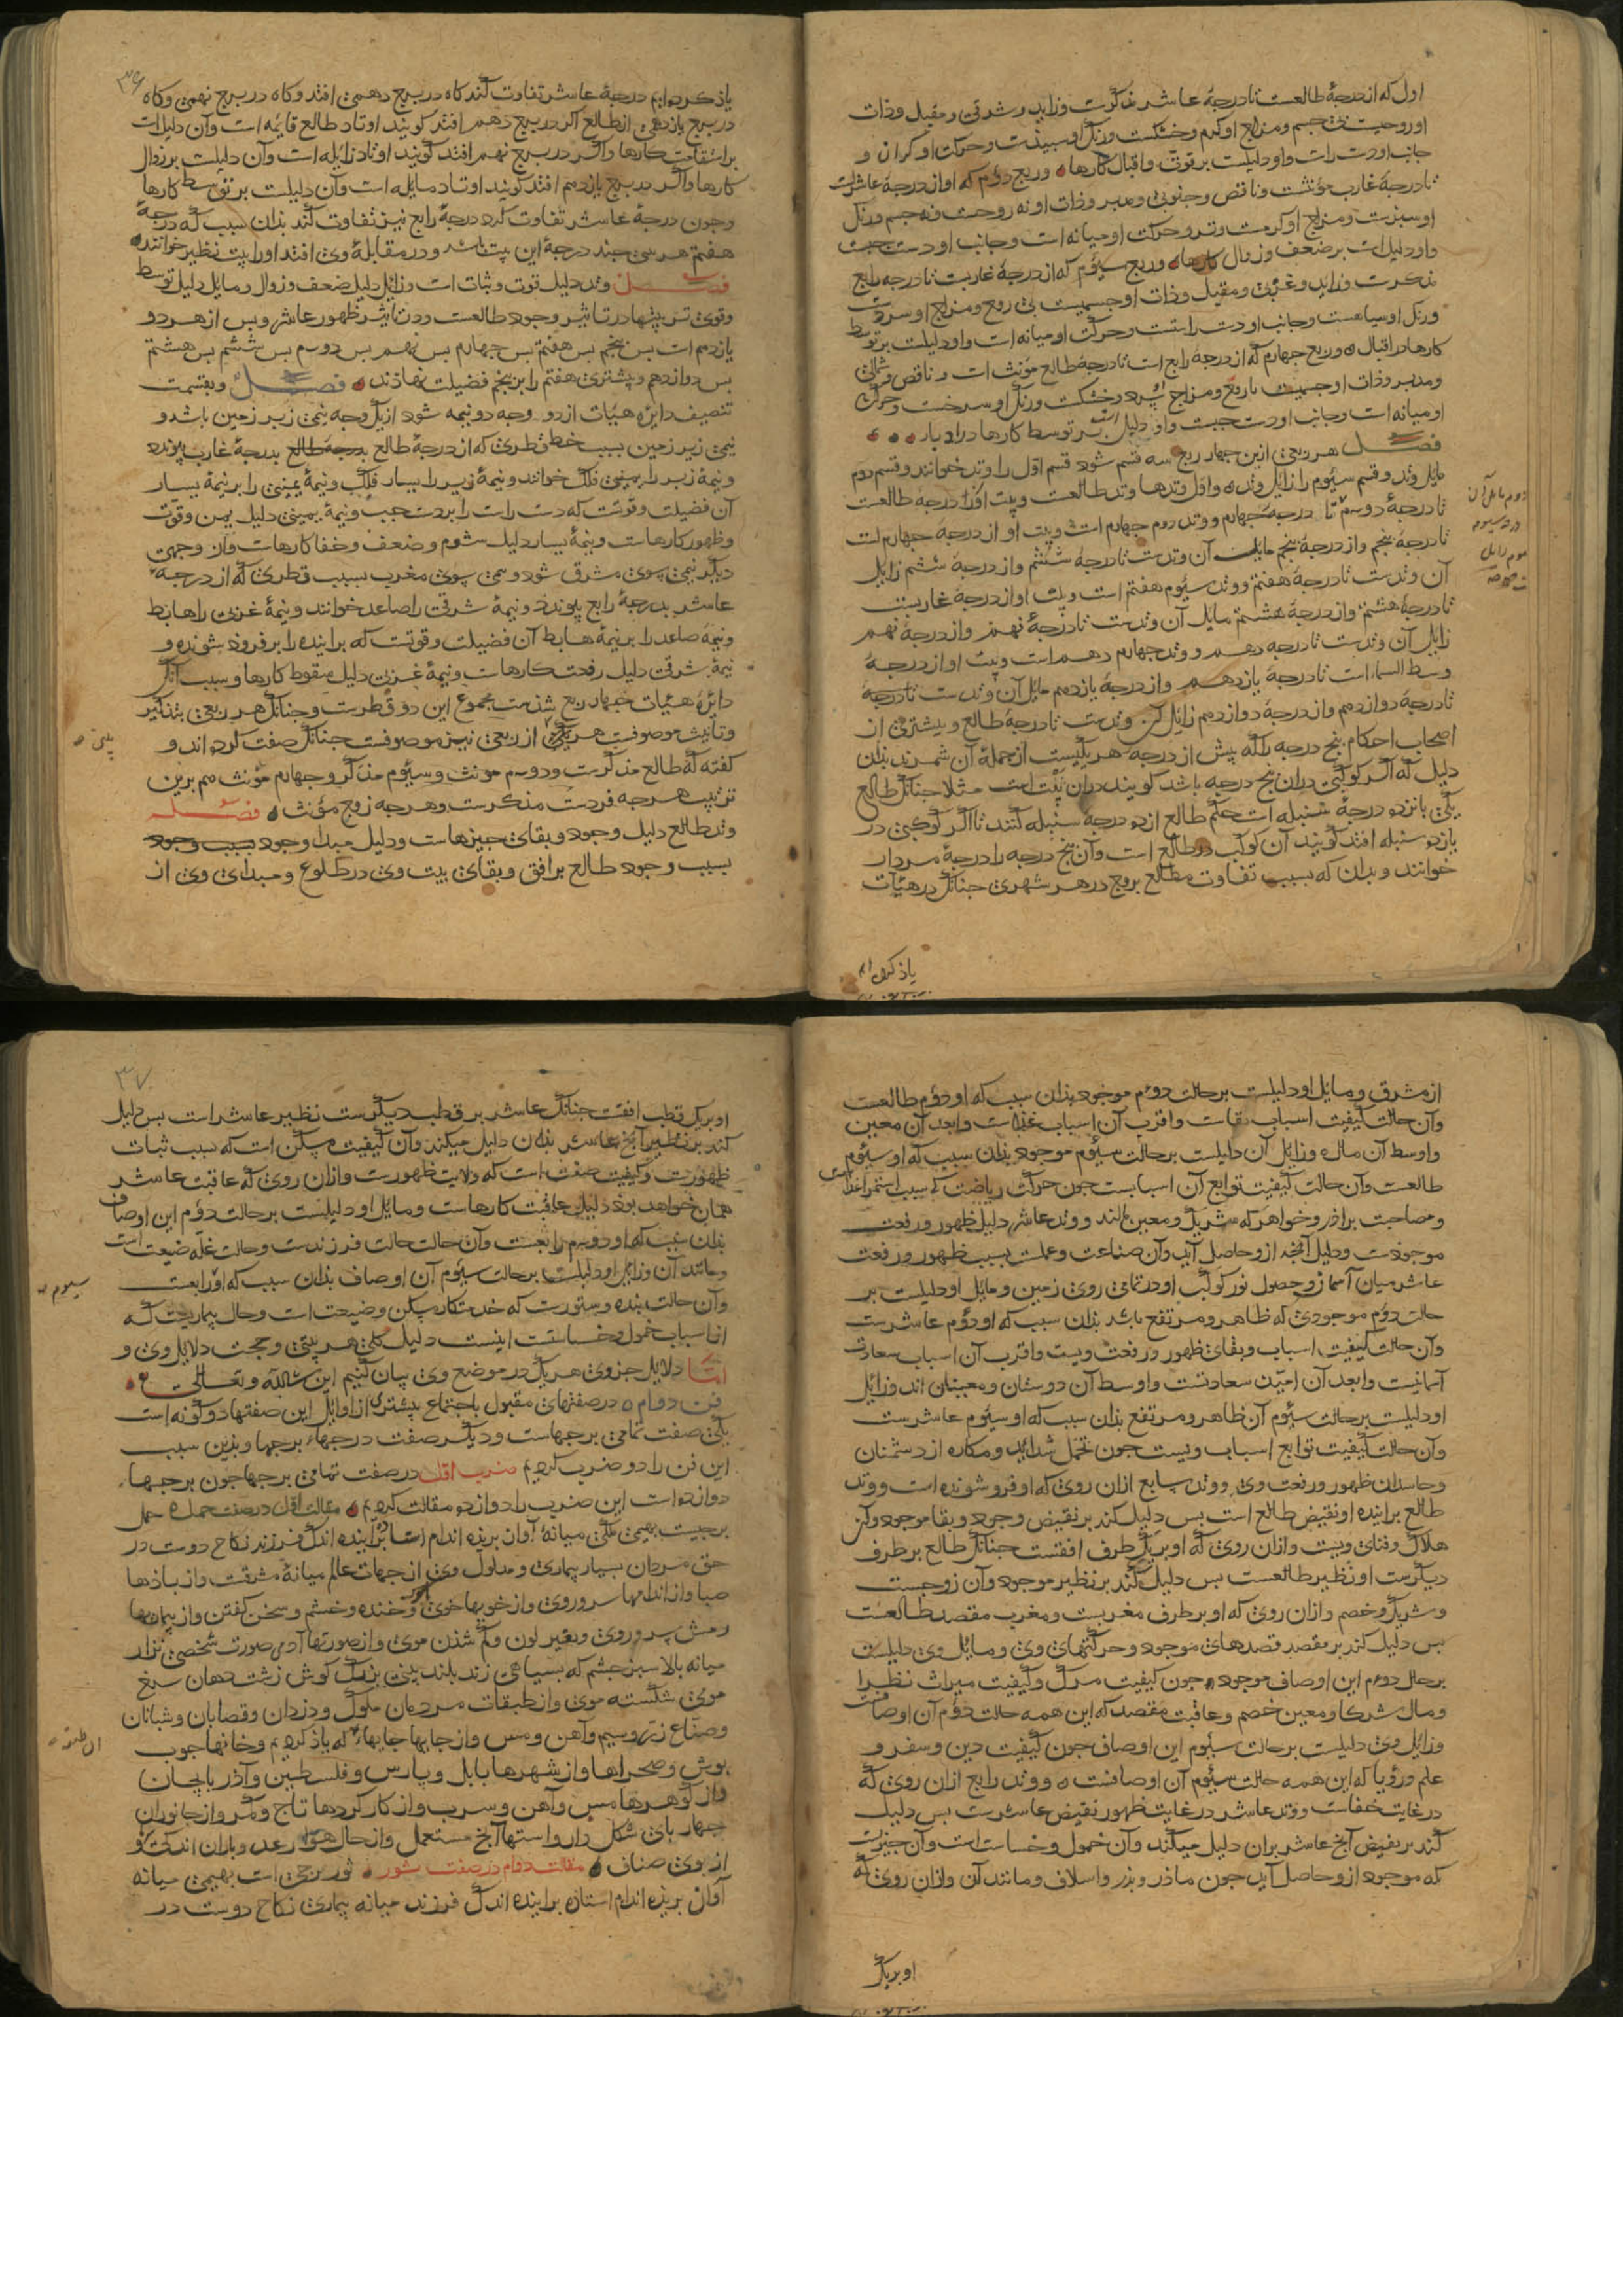 اول که از درجهٔ طالعست تا درجهٔ عاشر مذکرست و زاید و شرقی و مقبل و ذات
او روحیست بی جسم و مزاج او گرم و خشکست و رنگ او سپیدست و حرکت او گران و
جانب او دست راست و او دلیلست بر قوت و اقبال کارها و ربع دوم که او از درجهٔ عاشرست
تا درجهٔ غارب مؤنثست و ناقص و جنوبی و مدبر و ذات او نه روحست و نه جسم و رنگ
او سبزست و مزاج او گرمست و تر و حرکت او میانه است و جانب او دست چپست
و او دلیل است بر ضعف و زوال کارها و ربع سیوم که از درجهٔ غاربست تا درجه رابع
مذکرست و زاید و غربی و مقبل و ذات او جسمیست بی روح و مزاج او سردست
و رنگ او سیاهست و جانب او دست راستست و حرکت او میانه است و او دلیلست بر توسط
کارها در اقبال و ربع چهارم که از درجهٔ رابع است تا درجهٔ طالع مؤنث است و ناقص و شمالی
و مدبر و ذات او جسمیست با روح و مزاج او سرد و خشکست و رنگ او سرخست و حرکت
او میانه است و جانب او دست چپست و او دلیل است بر توسط کارها در ادبار
فصل هر ربعی ازین چهار ربع سه قسم شود قسم اول را وتد خوانند و قسم دوم
مایل وتد و قسم سیوم را زایل وتد و اول وتدها وتد طالعست و بیت او از درجهٔ طالعست
تا درجهٔ دوم تا درجهٔ چهارم و وتد دوم چهارم است و بیت او از درجهٔ چهارم است
تا درجهٔ پنجم و از درجهٔ پنجم مایل آن وتدست تا درجهٔ ششم و از درجهٔ ششم زایل
آن وتدست تا درجهٔ هفتم و وتد سیوم هفتم است و بیت او از درجهٔ غاربست
تا درجهٔ هشتم و از درجهٔ هشتم مایل آن وتدست تا درجهٔ نهم و از درجهٔ نهم
زایل آن وتدست تا درجه دهم و وتد چهارم دهم است و بیت او از درجهٔ
وسط السماء است تا درجهٔ یازدهم و از درجهٔ یازدهم مایل آن وتدست تا درجهٔ
تا درجهٔ دوازدهم و از درجهٔ دوازدهم زایل آن وتدست تا درجهٔ طالع و بیشتری از
اصحاب احکام پنج درجه را که پیش از درجهٔ هر بیتیست از جملهٔ آن شمرند بدان
دلیل که اگر کوکبی در آن پنج درجه باشد گویند در آن بیت است مثلا چنانک طالع
یکی پانزده درجهٔ سنبله است حکم طالع از ده درجهٔ سنبله کنند تا اگر کوکبی در
یازده سنبله افتد گویند آن کوکب در طالع است و آن پنج درجه را درجهٔ مردار
خوانند و بدان که بسبب تفاوت مطالع بروج در هر شهری چنانک در هیأت
دوم مایل آن
یاد کردیم
۳۶
یاد کردیم درجهٔ عاشر تفاوت کند گاه در برج دهمین افتد و گاه در برج نهمین و گاه
در برج یازدهمین از طالع اگر در برج دهم افتد گویند اوتاد طالع قایمه است و آن دلیل است
بر استقامت کارها و اگر در برج نهم افتد گویند اوتاد زایله است و آن دلیلست بر زوال
کارها و اگر در برج یازدهم افتد گویند اوتاد مایله است و آن دلیلست بر توسط کارها
و چون درجهٔ عاشر تفاوت کرد درجهٔ رابع نیز تفاوت کند بدان سبب که درجهٔ
هفتم هر سی چند درجهٔ این بیت باشد و در مقابلهٔ وی افتد او را بیت نظیر خوانند
فصل وتد دلیل قوت و ثبات است و زایل دلیل ضعف و زوال و مایل دلیل توسط
و قوی ترین بیتها در تاثیر وجود طالعست و در تاثیر ظهور عاشر و پس از هر دو
یازدهم است پس پنجم پس هفتم پس چهارم پس نهم پس دوم پس ششم پس هشتم
پس دوازدهم و بیشتری هفتم را بر پنجم فضیلت نهادند فصل و بقسمت
تنصیف دایرهٔ هیأت از دو وجه دو نیمه شود از یک وجه نیمی زبر زمین باشد و
نیمی زیر زمین بسبب خط قطری که از درجهٔ طالع بدرجهٔ طالع بدرجهٔ غارب پیوندد
و نیمهٔ زبر را یمین فلک خوانند و نیمهٔ زیر را یسار فلک و نیمهٔ یمین را بر نیمهٔ یسار
آن فضیلت و قوتست که دست راست را بر دست چپ و نیمهٔ یمین دلیل یمن و قوت
و ظهور کارهاست و نیمهٔ یسار دلیل شوم و ضعف و خفا کارهاست و از وجهی
دیگر نیمی سوی مشرق شود و نیمی سوی مغرب بسبب قطری که از درجهٔ
عاشر بدرجهٔ رابع پیوندد و نیمهٔ شرقی را صاعد خوانند و نیمهٔ غربی را هابط
و نیمهٔ صاعد را بر نیمهٔ هابط آن فضیلت و قوتست که برآینده را بر فرود شونده و
نیمهٔ شرقی دلیل رفعت کارهاست و نیمهٔ غربی دلیل سقوط کارها و سبب آنک
دایرهٔ هیأت چهار ربع شدست مجموع این دو قطرست و چنانک هر ربعی بتذکیر
و تأنیث موصوفست هر یکی از ربعی نیز موصوفست چنانک صفت کرده‌اند و
گفته که طالع مذکرست و دوم مونث و سیوم مذکر و چهارم مونث هم برین
ترتیب هرچه فردست مذکرست و هرچه زوج مؤنث فصل
وتد طالع دلیل وجود و بقای چیزهاست و دلیل مبدا وجود بسبب وجود
بسبب وجود طالع بر افق و بقای بیت وی در طلوع و مبدای وی از
از مشرق و مایل او دلیلست بر حالت دوم موجود بدان سبب که او دوم طالعست
و آن حالت کیفیت اسباب بقاست و اقرب آن اسباب غذاست و ابعد آن معین
و اوسط آن مال و زایل آن دلیلست بر حالت سیوم موجود بدان سبب که او سیوم
طالعست و آن حالت کیفیت توابع آن اسبابست چون حرکت ریاضت که سبب استمراء غذاست
و مصاحبت برادر و خواهر که شریک و معین مالند و وتد عاشر دلیل ظهور و رفعت
موجودست و دلیل آنچه ازو حاصل آید و آن صناعت و عملست بسبب ظهور و رفعت
عاشر میان آسمان و حصول نور کوکب او در تمامی روی زمین و مایل او دلیلست بر
حالت دوم موجودی که ظاهر و مرتفع باشد بدان سبب که او دوم عاشرست
و آن حالت کیفیت اسباب و بقای ظهور و رفعت ویست و اقرب آن اسباب سعادت
آسمانیست و ابعد آن امید سعادتست و اوسط آن دوستان و معینان اند و زایل
او دلیلست بر حالت سیوم آن ظاهر و مرتفع بدان سبب که او سیوم عاشرست
و آن حالت کیفیت توابع اسباب ویست چون تحمل شداید و مکاره از دشمنان
و حاسدان ظهور و رفعت وی و وتد سابع ازان روی که او فرو شونده است و وتد
طالع برآینده او نقیض طالع است پس دلیل کند بر نقیض وجود و بقا موجود و آن
هلاک و فنای ویست و ازان روی که او بر یک طرف افقست چنانک طالع بر طرف
دیگرست او نظیر طالعست پس دلیل کند بر نظیر موجود و آن زوجست
و شریک و خصم و ازان روی که او بر طرف مغربست و مغرب مقصد طالعست
پس دلیل کند بر مقصد قصدهای موجود و حرکتهای وی و مایل وی دلیلست
بر حال دوم این اوصاف موجود چون کیفیت مرگ و کیفیت میراث نظرا
و مال شرکا و معین خصم و عاقبت مقصد که این همه حالت دوم آن اوصافست
و زایل وی دلیلست بر حالت سیوم این اوصاف چون کیفیت دین و سفر و
علم و رؤیا که این همه حالت سیوم آن اوصافست و وتد رابع ازان روی که
در غایت خفاست و وتد عاشر در غایت ظهور نقیض عاشرست پس دلیل
کند بر نقیض آنچ عاشر بران دلیل میکند و آن خمول و خساست است و آن چیزیست
که موجود ازو حاصل آید چون مادر و پدر و اسلاف و مانند آن و ازان روی که
او بریک
۳۷
او بر یک قطب افقست چنانک عاشر بر قطب دیگرست نظیر عاشر است پس دلیل
کند بر نظیر آنچ عاشر بدان دلیل میکند و آن کیفیت مسکن است که سبب ثبات
ظهورست و کیفیت صفت است که ولایت ظهورست و ازان روی که عاقبت عاشر
همان خواهد بود دلیل عاقبت کارهاست و مایل او دلیلست بر حالت دوم این اوصاف
بدان سبب که او دوم رابعست و آن حالت حالت فرزندست و حالت غله ضیعت است
و مانند آن و زایل او دلیلست بر حالت سیوم آن اوصاف بدان سبب که او رابعست
سیوم
و آن حالت بنده و ستورست که خدمتکار مسکن و ضیعت است و حال بیماریست که
از اسباب خمول و خساستست اینست دلیل کلی هر بیتی و حجت دلایل وی و
اما دلایل جزوی هر یک در موضع وی بیان کنیم ان شاءالله و تعالی
فن دوم در صفتهای مقبول باجتماع بیشتری از اوایل این صفتها دو گونه است
یکی صفت تمامی برجهاست و دیگر صفت درجهاء برجها و بدین سبب
این فن را دو ضرب کردیم ضرب اول در صفت تمامی برجها چون برجها
دوازده است این ضرب را دوازده مقالت کردیم مقالت اول در صفت حمل حمل
برجیست بهیمی ملکی میانهٔ آواز بریده اندام استاده برآینده اندک فرزند نکاح دوست در
حق مردان بسیار بیماری و مدلول وی از جهات عالم میانهٔ مشرقست و از بادها
صبا و از اندامها سر و روی و از خویها خوی و خنده و خشم و سخن گفتن و از بیماریها
و تغیر لون و کم شدن موی و از صورتها آدمی صورت شخصی نزار
میانه بالا سبز چشم که بسیاهی زند بلند بینی بزرگ گوش زشت دهان سرخ
موی شکسته موی و از طبقات مردمان ملوک و دزدان و قصابان و شبانان
و صناع زر و سیم و آهن و مس و از جایها جایهاء که یاد کردیم و خانها چوب
پوش و صحراها و از شهرها بابل و پارس و فلسطین و آذربایجان
و از گوهرها مس و آهن و سرب و از کار کردها تاج و کمر و از جانوران
چهار پای شکل دار و استها آنچ مستعمل و از حال هوا رعد و باران اندک و
از وی صناف مقالت دوم در صفت ثور ثور برجی است بهیمی میانه
آواز بریده اندام استاده برآینده اندک فرزند میانه بیماری نکاح دوست در